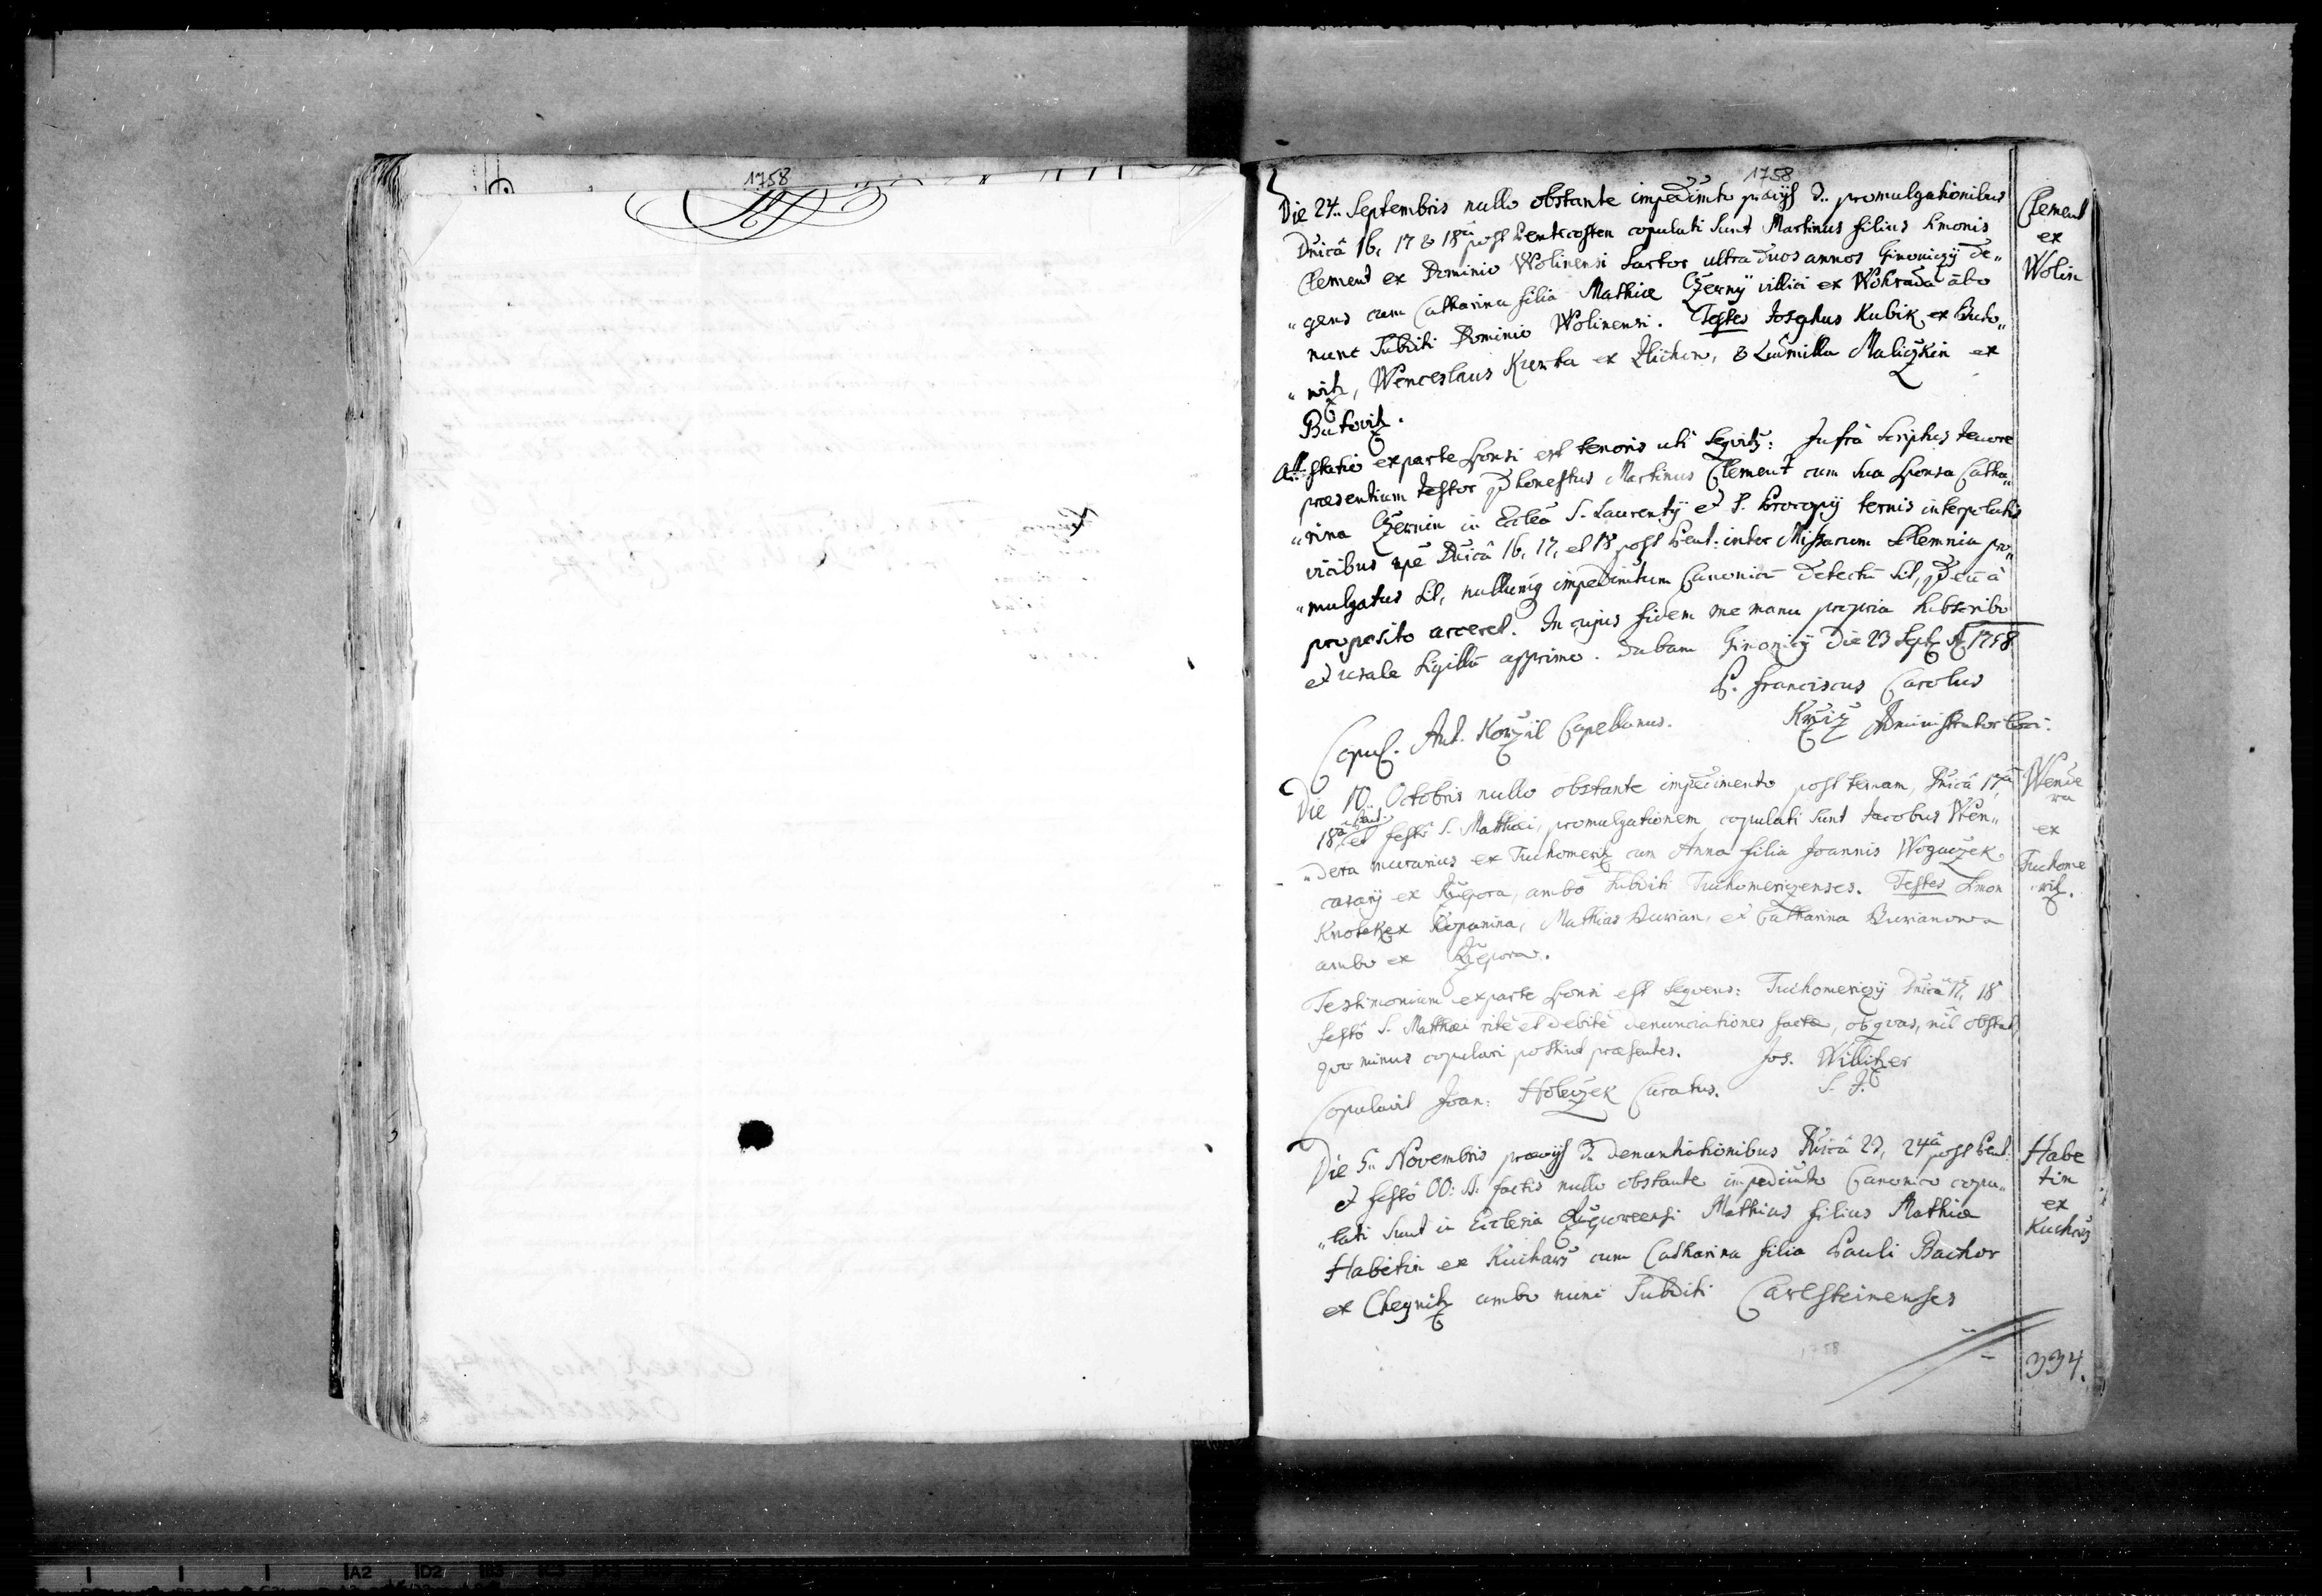 1758
1758
Die 24.. Septembris nullo obstante impedimto prævijs 3.. promulgationibus
Dnicâ 16, 17 & 18â post Pentecosten copulati sunt Martinus filius Simonis
Clement ex Dominio Wolinensi Sartor ultra duos annos Ginoniczÿ de„
„gens cum Catharina filia Mathiæ Czerny villici ex Wohrada abo
nunc Subditi Dominio Wolinensi. Testes Josephus Kubik ex Buto„
„witz, Wenceslaus ex Zlichow, & Ludmilla Maliczkin ex
Butovitz.
Clement
ex
Wolin
Attestatio ex parte Sponsi est tenoris uti seqvitr: Infrâ Scriptus tenore
præsentium testor qd honestus Martinus Clement cum sua Sponsa Catha„
„rina Czernin in Eccleâ S. Laurentÿ et S. Procopÿ ternis interpolatis
vicibus Dnicâ 16, 17, et 18 post Pent: inter Missarum Solemnia pro„
„mulgatus sit, nullumq impedimtum Canonicū detectū sit, qd eū â
proposito arceret. In cujus fidem me manu propria subscribo
et usuale Sigillū apprimo. Dabam Ginoniczÿ Die 23 Sept. A 1758
P. Franciscus Carolus
Administrator loci.
Copul. Ant. Capellanus.
Die 10.. Octobris nullo obstante impedimento post ternam, Dnicâ 17,
18â Pent: et festô S. Matthæi, promulgationem copulati sunt Jacobus Wen„
„dera murarius ex Tuchomeritz cum Anna filia Joannis Wogaczek
casarÿ ex Rzepora, ambo Subditi Tuchomericzenses. Testes Simon
Knotek ex Kopanina, Mathias Burian, et Catharina Burianowa
ambo ex Rzepora.
Wende
ra
ex
Tuchome
ritz.
Testimonium ex parte Sponsi est seqvens: Tuchomericzÿ Dnicâ 17, 18
festô S. Matthæi ritè et debitè denunciationes factæ, ob qvas, nil obstat
qvo minus copulari possint præsentes. Jos. Willitzer
S. J.
Copulavit Joan: Holeczek Curatus.
Die 5.. Novembris prævijs 3.. denuntiationibus Dnicâ 23, 24â post Pent:
et festô OO: SS. factis nullo obstante impedimto Canonico copu„
„lati sunt in Ecclesia Mathias filius Mathiæ
Habetin ex Kucharz cum Catharina filia Pauli Bachor
ex Cheynitz ambo nunc Subditi Carlsteinenses
Habe
tin
ex
Kucharz
334.